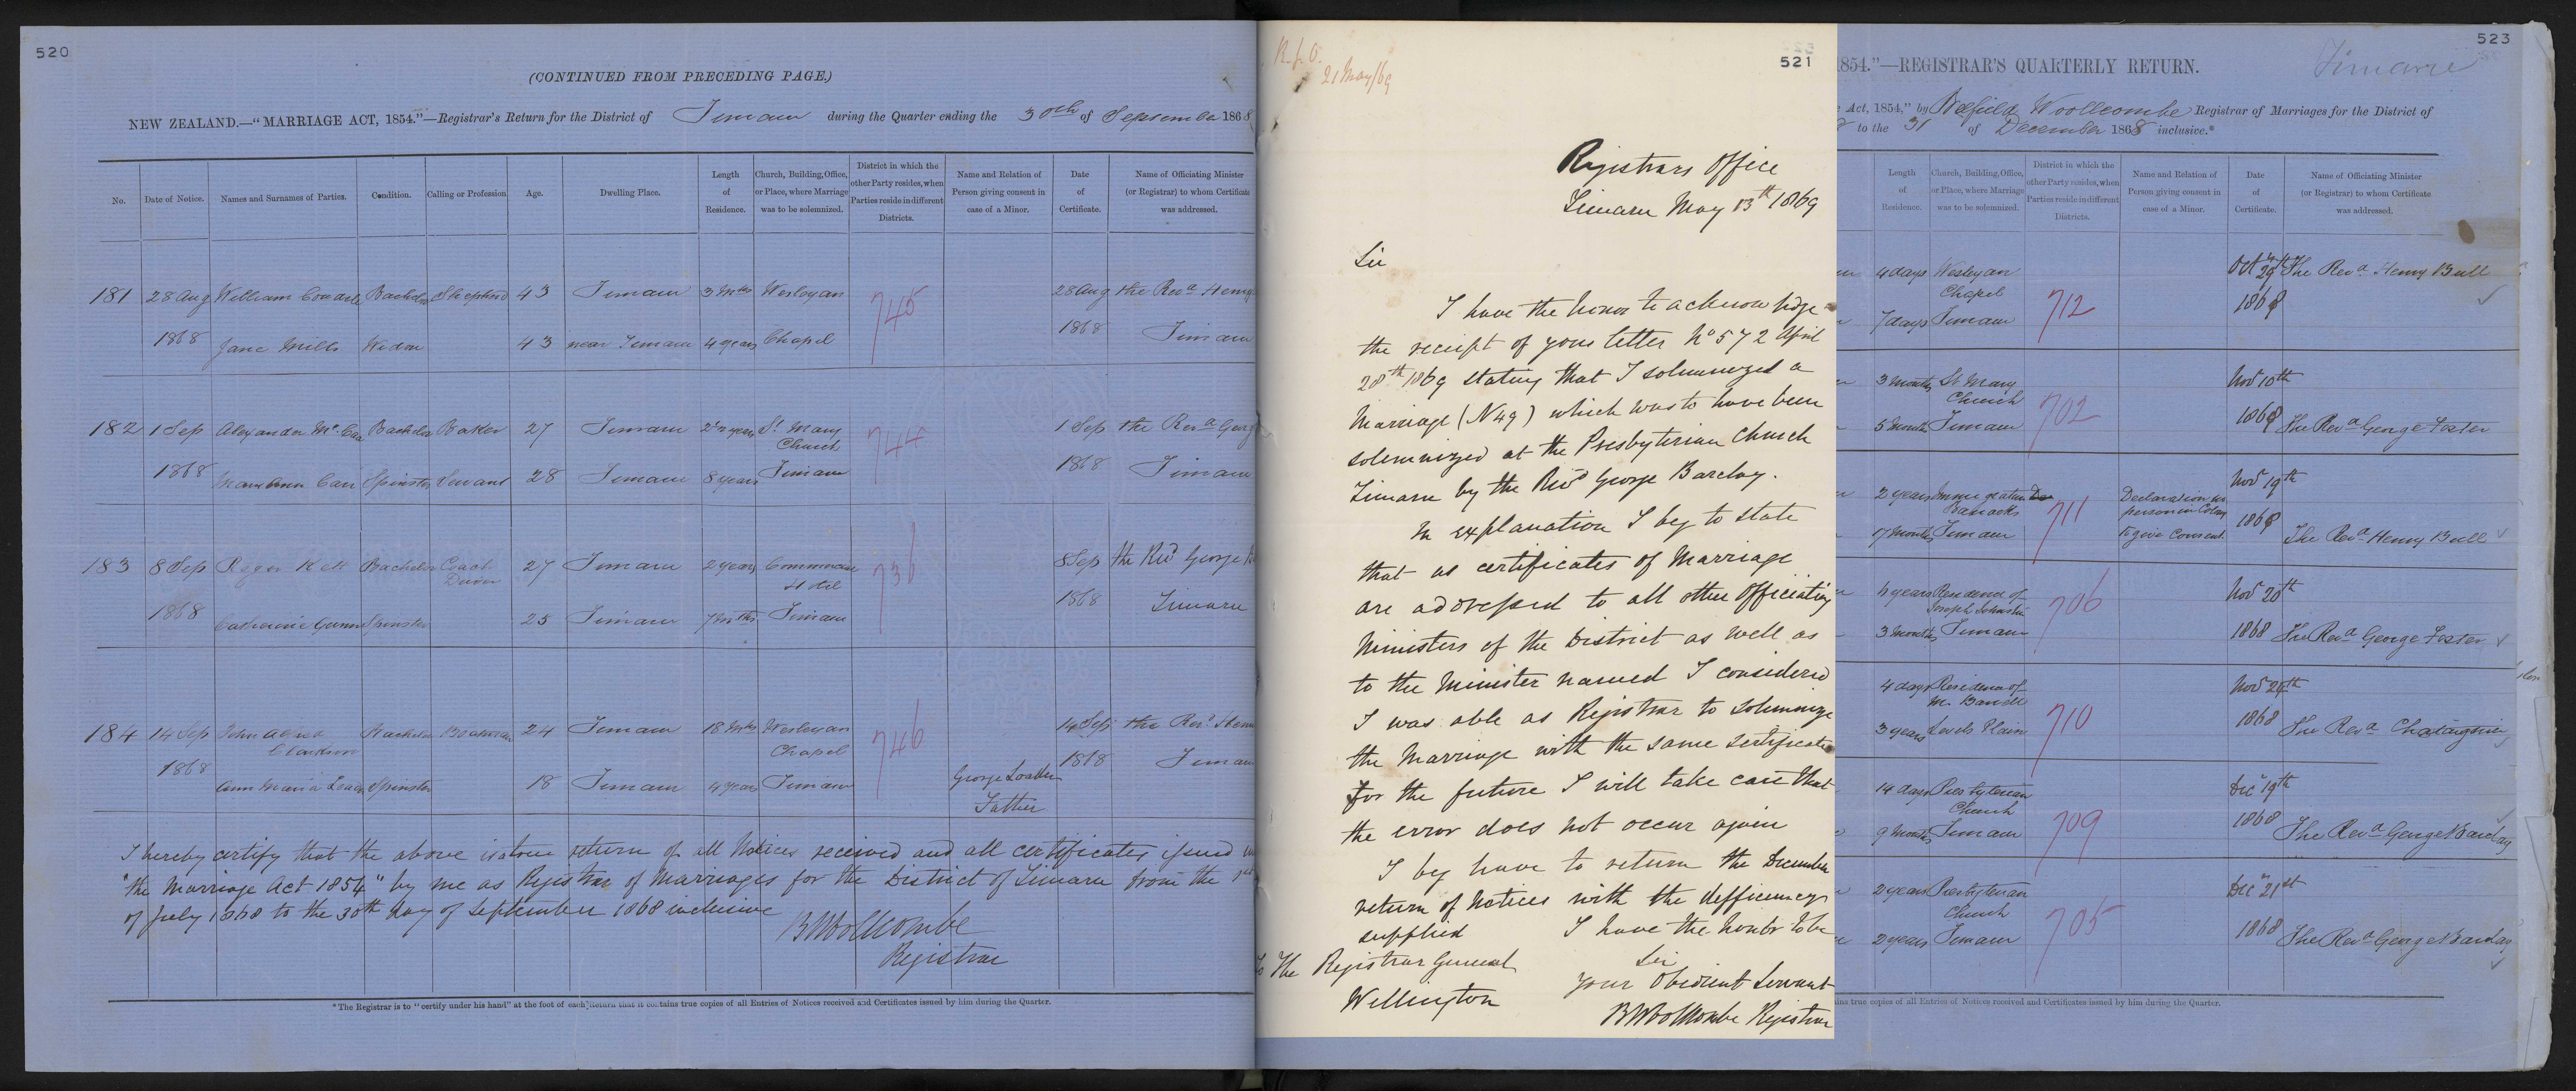 520
(CONTINUED FROM PRECEDING PAGE.)
NEW ZEALAND.—"MARRIAGE ACT, 1854."—Registrar's Return for the District of Timaru during the Quarter ending the 30th of September 1868
No. Date of Notice. Names and Surnames of Parties. Condition. Calling or Profession. Age. Dwelling Place. Length of Residence. Church, Building, Office, or Place, where Marriage was to be solemnized. District in which the other Party resides, when Parties reside in different Districts. Name and Relation of Person giving consent in case of a Minor. Date of Certificate. Name of Officiating Minister (or Registrar) to whom Certificate was addressed.
181 28 Aug William Bachelor Shepherd 43 Timaru 3 Mths Wesleyan 745 28 Aug the Revd Henry
1868 Jane Mills Widow 43 near Timaru 4 years Chapel 1868 Timaru
182 1 Sep Alexander Bachelor Baker 27 Timaru 2 years St Mary Church 744 1 Sep the Revd Georg
1868 Mary Ann Carr Spinster Servant 28 Timaru 8 years Timaru 1868 Timaru
183 8 Sep Roger Bachelor Coach Driver 27 Timaru 2 years Commercial Hotel 736 8 Sep the Revd George
1868 Catherine Gunn Spinster 25 Timaru 7 Mths Timaru 1868 Timaru
184 14 Sep John Alfred Bachelor Boatman 24 Timaru 18 Mths Wesleyan Chapel 746 14 Sep the Revd Henr
1868 Ann Maria Spinster 18 Timaru 4 years Timaru George Father 1868 Timaru
I hereby certify that the above is a true return of all Notices received and all certificates issued
"the Marriage Act 1854" by me as Registrar of Marriages for the District of Timaru from the 1st
of July 1868 to the 30th day of September 1868 inclusive
B Woollcombe
Registrar
*The Registrar is to "certify under his hand" at the foot of each Return that it contains true copies of all Entries of Notices received and Certificates issued by him during the Quarter.
R.G.O.
21 May/69
521
Registrars Office
Timaru May 13th 1869
Sir
I have the honor to acknowledge
the receipt of your letter No 572 April
28th 1869 stating that I solemnized a
Marriage (N 49) which was to have been
solemnized at the Presbyterian Church
Timaru by the Revd George Barclay.
In explanation I beg to state
that as certificates of Marriage
are addressed to all other Officiating
Ministers of the District as well as
to the Minister named I considered
I was able as Registrar to solemnize
the Marriage with the same certificate
For the future I will take care that
the error does not occur again
I beg have to return the December
return of Notices with the defficiency
supplied I have the honor to be
Sir
To The Registrar General
Your Obedient Servant
Wellington
B Woollcombe Registrar
523
Timaru
1854."—REGISTRAR'S QUARTERLY RETURN.
Act, 1854," by Belfield Woollcombe Registrar of Marriages for the District of
to the 31 of December 1868 inclusive.*
Length of Residence. Church, Building, Office, or Place, where Marriage was to be solemnized. District in which the other Party resides, when Parties reside in different Districts. Name and Relation of Person giving consent in case of a Minor. Date of Certificate. Name of Officiating Minister (or Registrar) to whom Certificate was addressed.
4 days Wesleyan Chapel 712 Oct 29th The Revd Henry Bull
7 days Timaru 1868
3 months St Mary Church 702 Nov 10th
5 months Timaru 1868 The Revd George Foster
2 years Immigration Barracks 711 Declaration no person in Colony Nov 19th
17 months Timaru to give Consent 1868 The Revd Henry Bull
4 years Residence of Joseph 706 Nov 20th
3 months Timaru 1868 The Revd George Foster
4 days Residence of 710 Nov
3 years Levels Plain 1868 The Revd
14 days Presbyterian Church 709 Dec 19th
9 months Timaru 1868 The Revd George Barclay
2 years Presbyterian Church 705 Dec 21st
2 years Timaru 1868 The Revd George Barclay
ins true copies of all Entries of Notices received and Certificates issued by him during the Quarter.